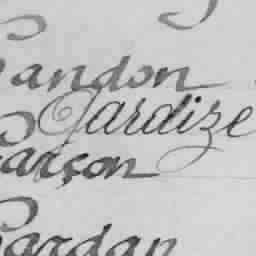 Gandon
Gardize
Garçon
Gardan